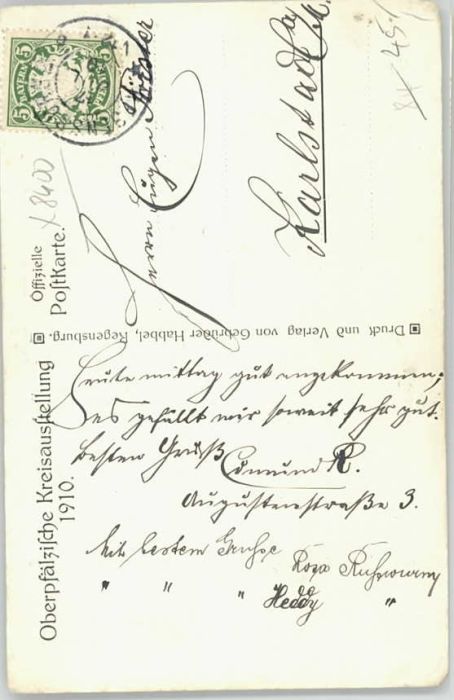 Oberpfälzische Kreisausstellung
1910.
Offizielle
Postkarte.
Druck und Verlag von Gebrüder Habbel, Regensburg.
BAYERN
5 5
Herrn Eugen Förster
Karlstadt a/M.
Heute mittag gut angekommen;
es gefällt mir soweit sehr gut.
besten Gruß
Edmund R.
Augustenstraße 3.
Mit bestem Grusse Rosa
" " " Heddy "
X 8400